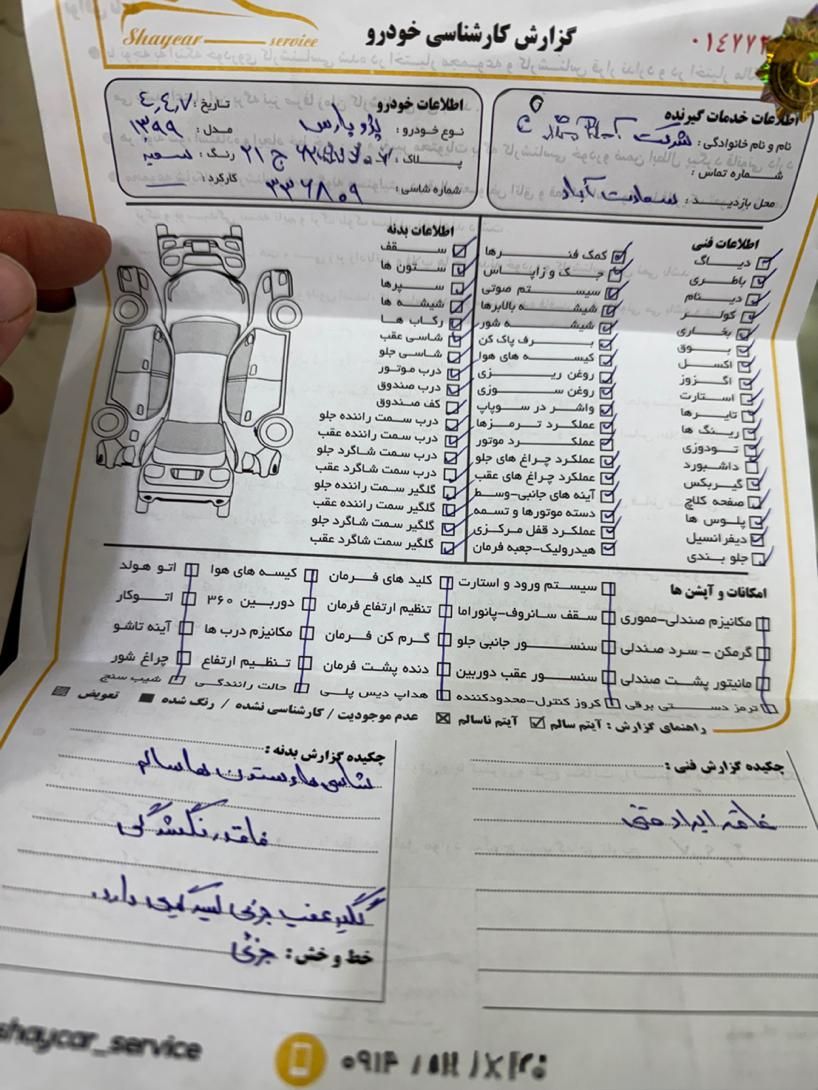 Shaycar service
گزارش کارشناسی خودرو
اطلاعات خدمات گیرنده
نام و نام خانوادگی : شرکت
شماره تماس :
محل بازدید : سعادت آباد
اطلاعات خودرو
تاریخ : ۴,۴,۷
نوع خودرو : پژو پارس
مدل : ۱۳۹۹
پلاک :
رنگ : سفید
شماره شاسی : ۳۳۶۸۰۹
کارکرد :
اطلاعات فنی
دیاگ
باطری
دینام
کولر
بخاری
بوق
اکسل
اگزوز
استارت
تایرها
رینگ ها
تودوزی
داشبورد
گیربکس
صفحه کلاچ
پلوس ها
دیفرانسیل
جلو بندی
کمک فنرها
جک و زاپاس
سیستم صوتی
شیشه بالابرها
شیشه شور
برف پاک کن
کیسه های هوا
روغن ریزی
روغن سوزی
واشر در سوپاپ
عملکرد ترمزها
عملکرد موتور
عملکرد چراغ های جلو
عملکرد چراغ های عقب
آینه های جانبی-وسط
دسته موتورها و تسمه
عملکرد قفل مرکزی
هیدرولیک-جعبه فرمان
اطلاعات بدنه
سقف
ستون ها
سپرها
شیشه ها
رکاب ها
شاسی عقب
شاسی جلو
درب موتور
درب صندوق
کف صندوق
درب سمت راننده جلو
درب سمت راننده عقب
درب سمت شاگرد جلو
درب سمت شاگرد عقب
گلگیر سمت راننده جلو
گلگیر سمت راننده عقب
گلگیر سمت شاگرد جلو
گلگیر سمت شاگرد عقب
امکانات و آپشن ها
مکانیزم صندلی-مموری
گرمکن - سرد صندلی
مانیتور پشت صندلی
ترمز دستی برقی
سیستم ورود و استارت
سقف سانروف-پانوراما
سنسور جانبی جلو
سنسور عقب دوربین
کروز کنترل-محدودکننده
کلید های فرمان
تنظیم ارتفاع فرمان
گرم کن فرمان
دنده پشت فرمان
هداپ دیس پلی
کیسه های هوا
دوربین ۳۶۰
مکانیزم درب ها
تنظیم ارتفاع
حالت رانندگی
اتو هولد
اتوکار
آینه تاشو
چراغ شور
شیب سنج
راهنمای گزارش : آیتم سالم آیتم ناسالم عدم موجودیت / کارشناسی نشده / رنگ شده تعویض
چکیده گزارش فنی :
فاقد ایراد فنی
چکیده گزارش بدنه :
شاسی ها و ستون ها سالم
فاقد رنگ شدگی
گلگیر عقب جزئی لیسه گیری دارد.
خط و خش : جزئی
shaycar_service